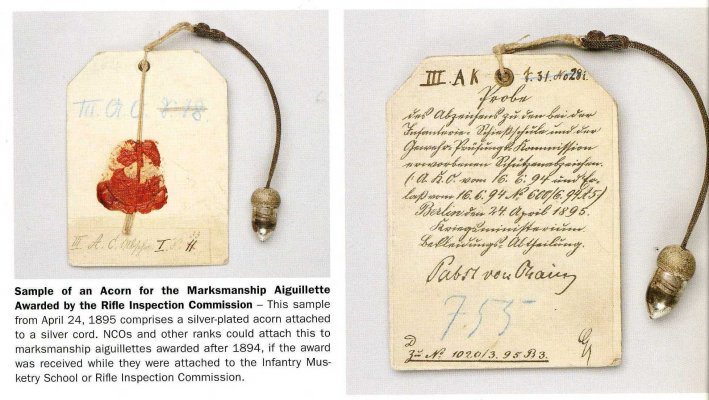 III. A. C.
Sample of an Acorn for the Marksmanship Aiguillette
Awarded by the Rifle Inspection Commission – This sample
from April 24, 1895 comprises a silver-plated acorn attached
to a silver cord. NCOs and other ranks could attach this to
marksmanship aiguillettes awarded after 1894, if the award
was received while they were attached to the Infantry Mus-
ketry School or Rifle Inspection Commission.
III. A K
Probe
des Abzeichens zu den bei der
Infanterie-Schießschule und der
Gewehr-Prüfungs-Kommission
erworbenen Schützenabzeichen.
(A. K. O. vom 16. 6. 94 und Er-
laß vom 16. 6. 94 No 600/6. 94
Berlin den 24 April 1895.
Kriegsministerium.
Bekleidungs-Abtheilung.
Pabst von
755
Zu No 1020/3. 95 B3.